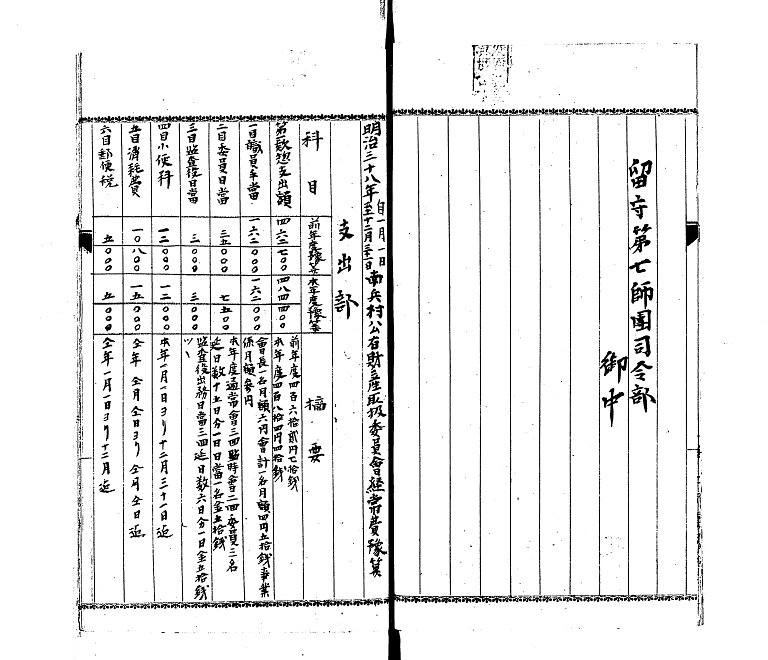 留守第七師團司令部
御中
明治三十八年自一月一日至十二月三十一日南兵村公有財産取扱委員會経常費豫算
支出部
科目
前年度豫算
本年度豫算
摘要
第一款惣支出額
四六二七〇〇
四八四四〇〇
前年度四百六拾貳円七拾銭
本年度四百八拾四円四拾銭
一目職員手當
一六二〇〇〇
一六二〇〇〇
會長一名月額六円會計一名月額四円五拾銭事業
係月額参円
二目委員日當
三五〇〇〇
七五〇〇
本年度通常會三回臨時會二回委員三名
延日数十五日分一日日當一名金五拾銭
三目監査役日當
三〇〇〇
三〇〇〇
監査役出務日當三回延日数六日分一日金五拾銭
ツヽ
四目小使料
一二〇〇〇
一二〇〇〇
本年一月一日ヨリ十二月三十一日迄
五目消耗費
一〇八〇〇
一五〇〇〇
仝年仝月仝日ヨリ仝月仝日迄
六目郵便税
五〇〇〇
五〇〇〇
仝年一月一日ヨリ十二月迄